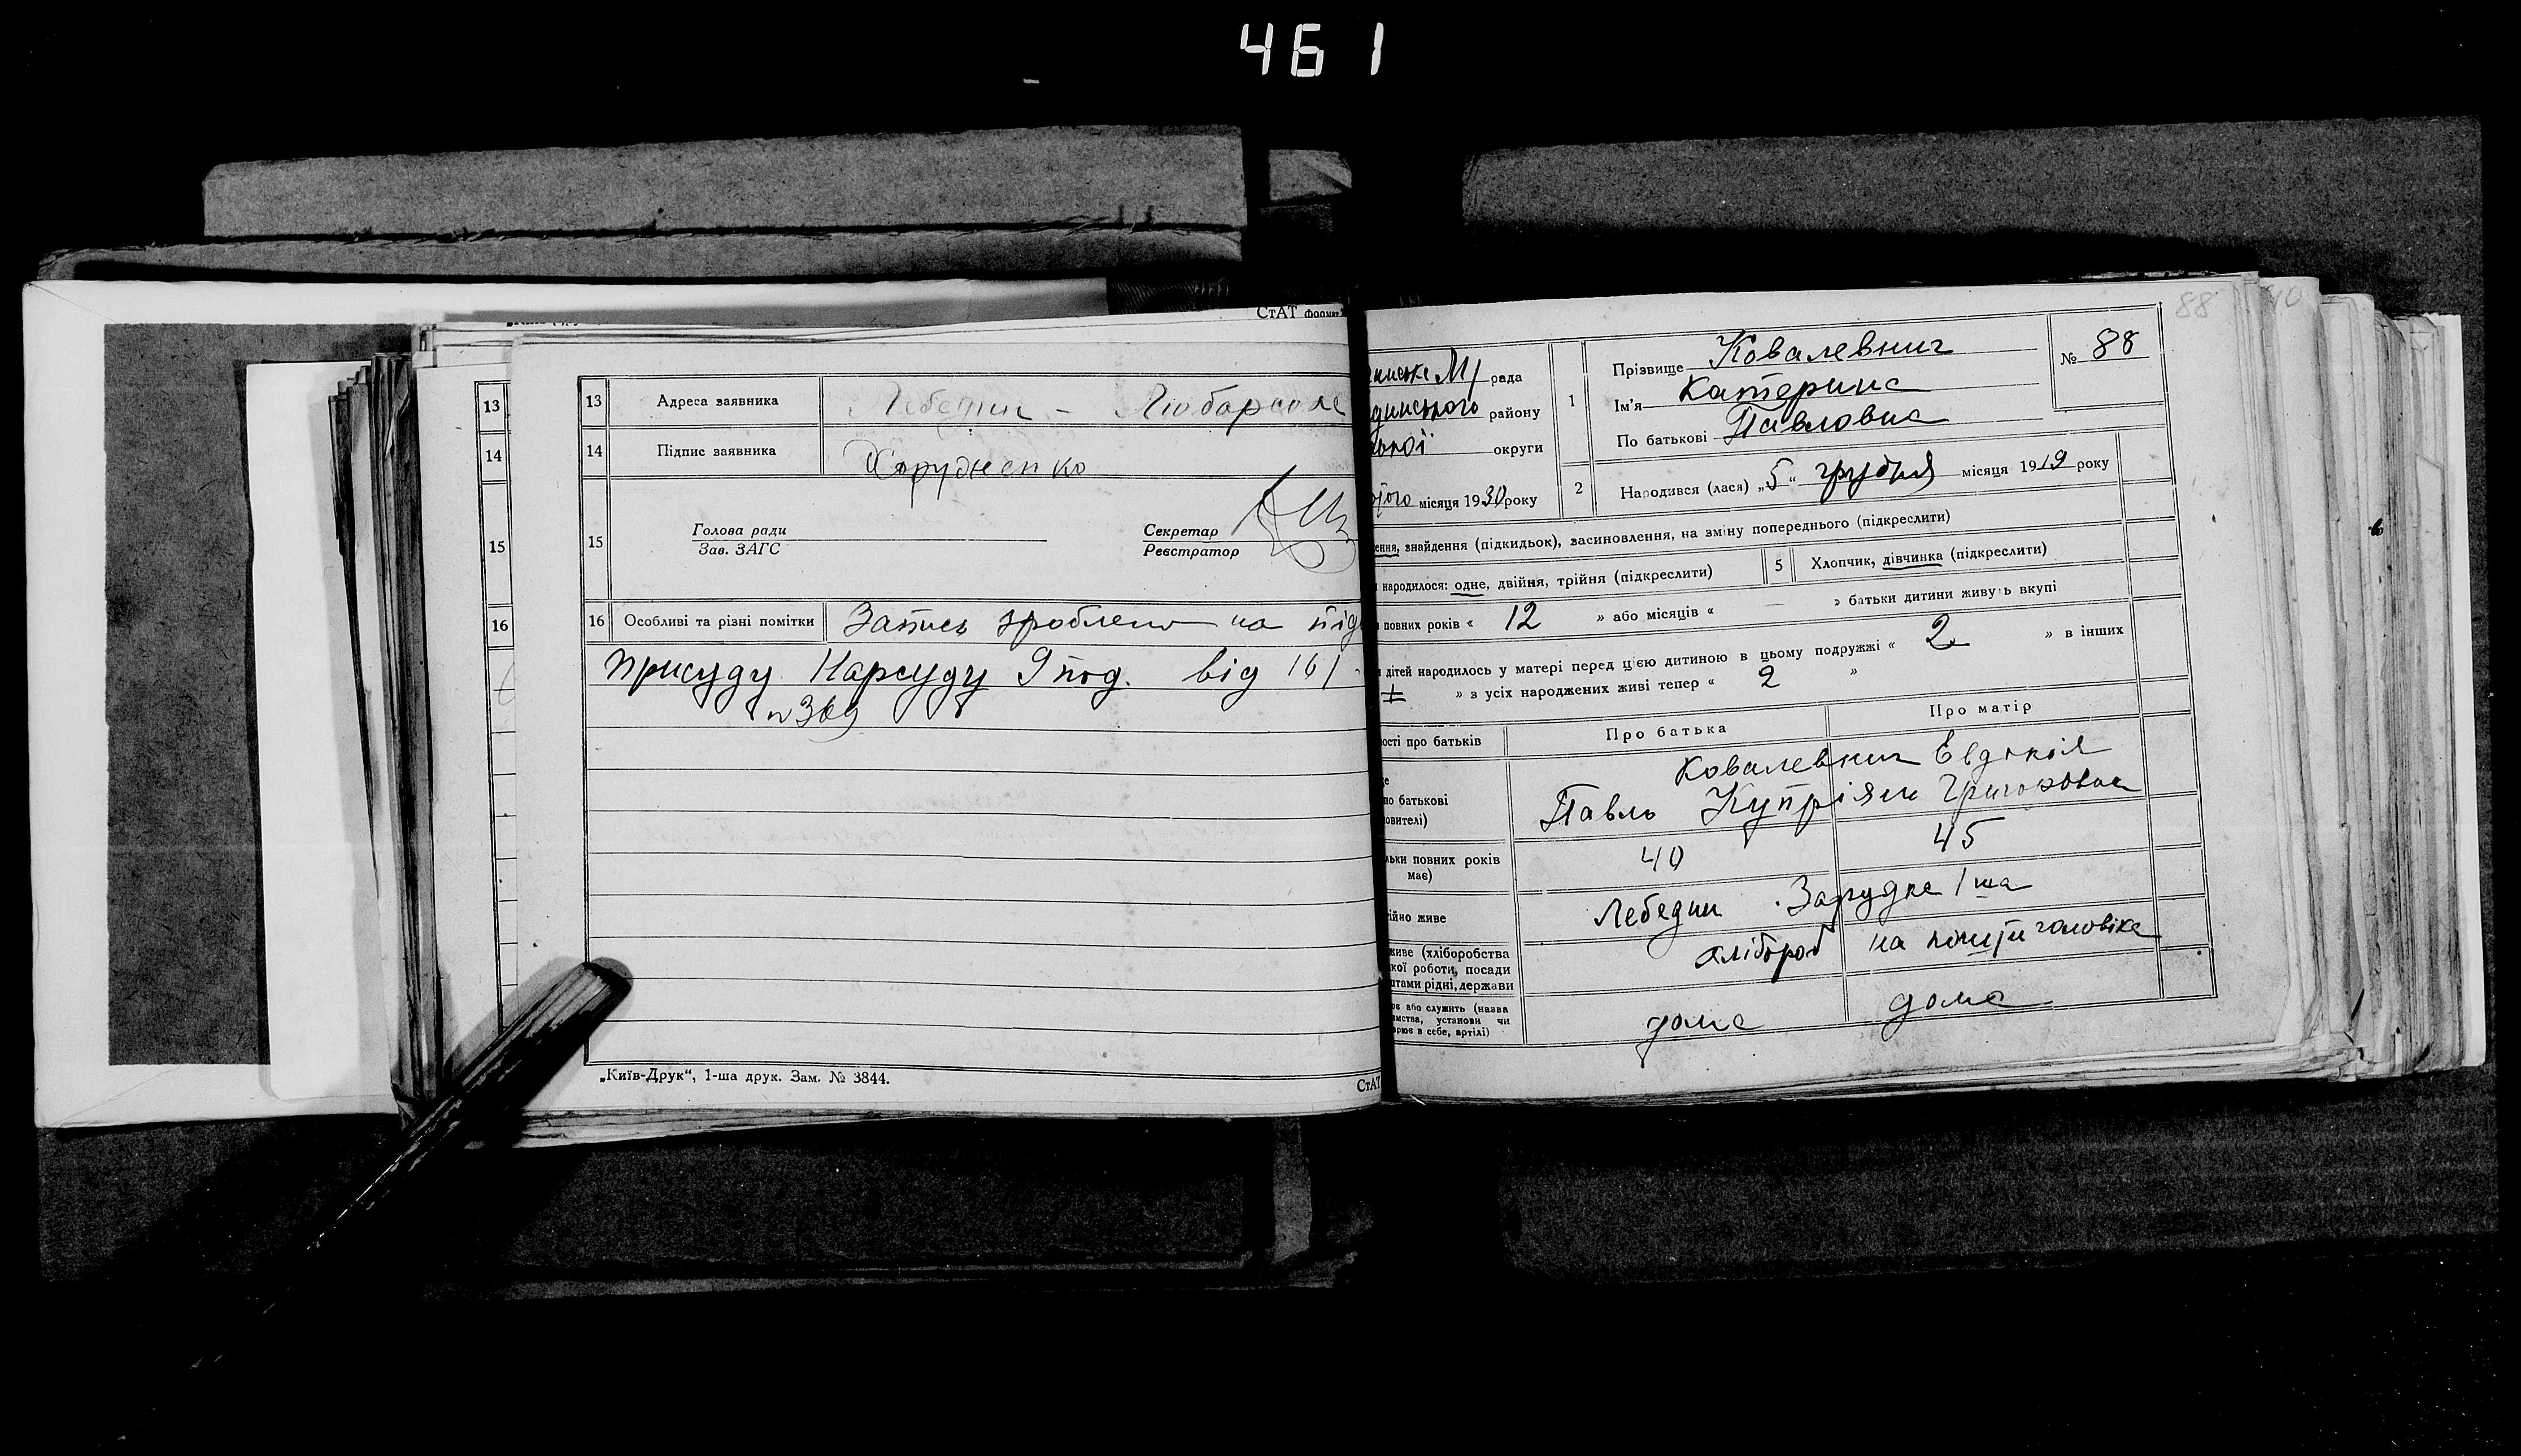 461
СтАТ формат
13
14
15
16
13 Адреса заявника Лебедин -
14 Підпис заявника
15 Голова ради Зав. ЗАГС Секретар Реєстратор
16 Особливі та різні помітки Запись зроблено на підс
присуду Нарсуду 9 под. від 16/
№ 369
„Київ-Друк“, 1-ша друк. Зам. № 3844.
СтАТ
88
рада
району
округи
місяця 1930 року
1 Прізвище Ковалевнич
Ім'я Катерина
По батькові Павловна
№ 88
2 Народився (лася) „5“ грудня місяця 1919 року
ення, знайдення (підкидьок), засиновлення, на зміну попереднього (підкреслити)
народилося: одне, двійня, трійня (підкреслити) 5 Хлопчик, дівчинка (підкреслити)
повних років « 12 » або місяців « — » батьки дитини живуть вкупі
дітей народилось у матері перед цією дитиною в цьому подружжі « 2 » в інших
» з усіх народжених живі тепер « 2 »
ості про батьків Про батька Про матір
Ковалевнич Евдокія
по батькові Павло Купріян Григоровна
овителі)
льки повних років має) 40 45
ійно живе Лебедин Зарудка 1 ша
живе (хліборобства
кої роботи, посади хлібороб на кошти чоловіка
штами рідні, держави
ює або служить (назва
ємства, установи чи дома дома
арює в себе, артілі)